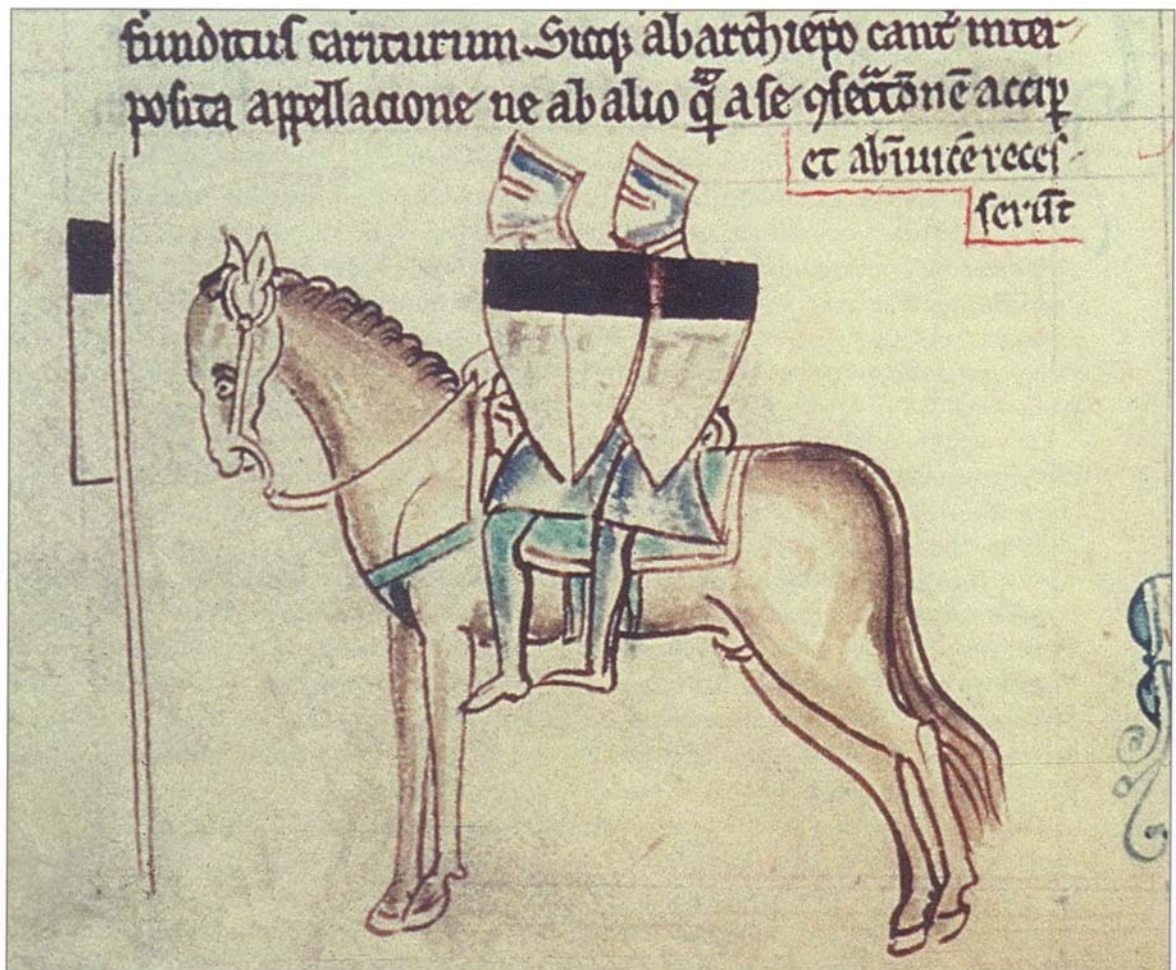 funditus cariturum. Sicq; ab archiep̄o cant̄ inter-
posita appellacione ne ab alio q̄ͫ a se ꝯsecᷓtōnē accip̄
et ab īuicē reces-
serūt